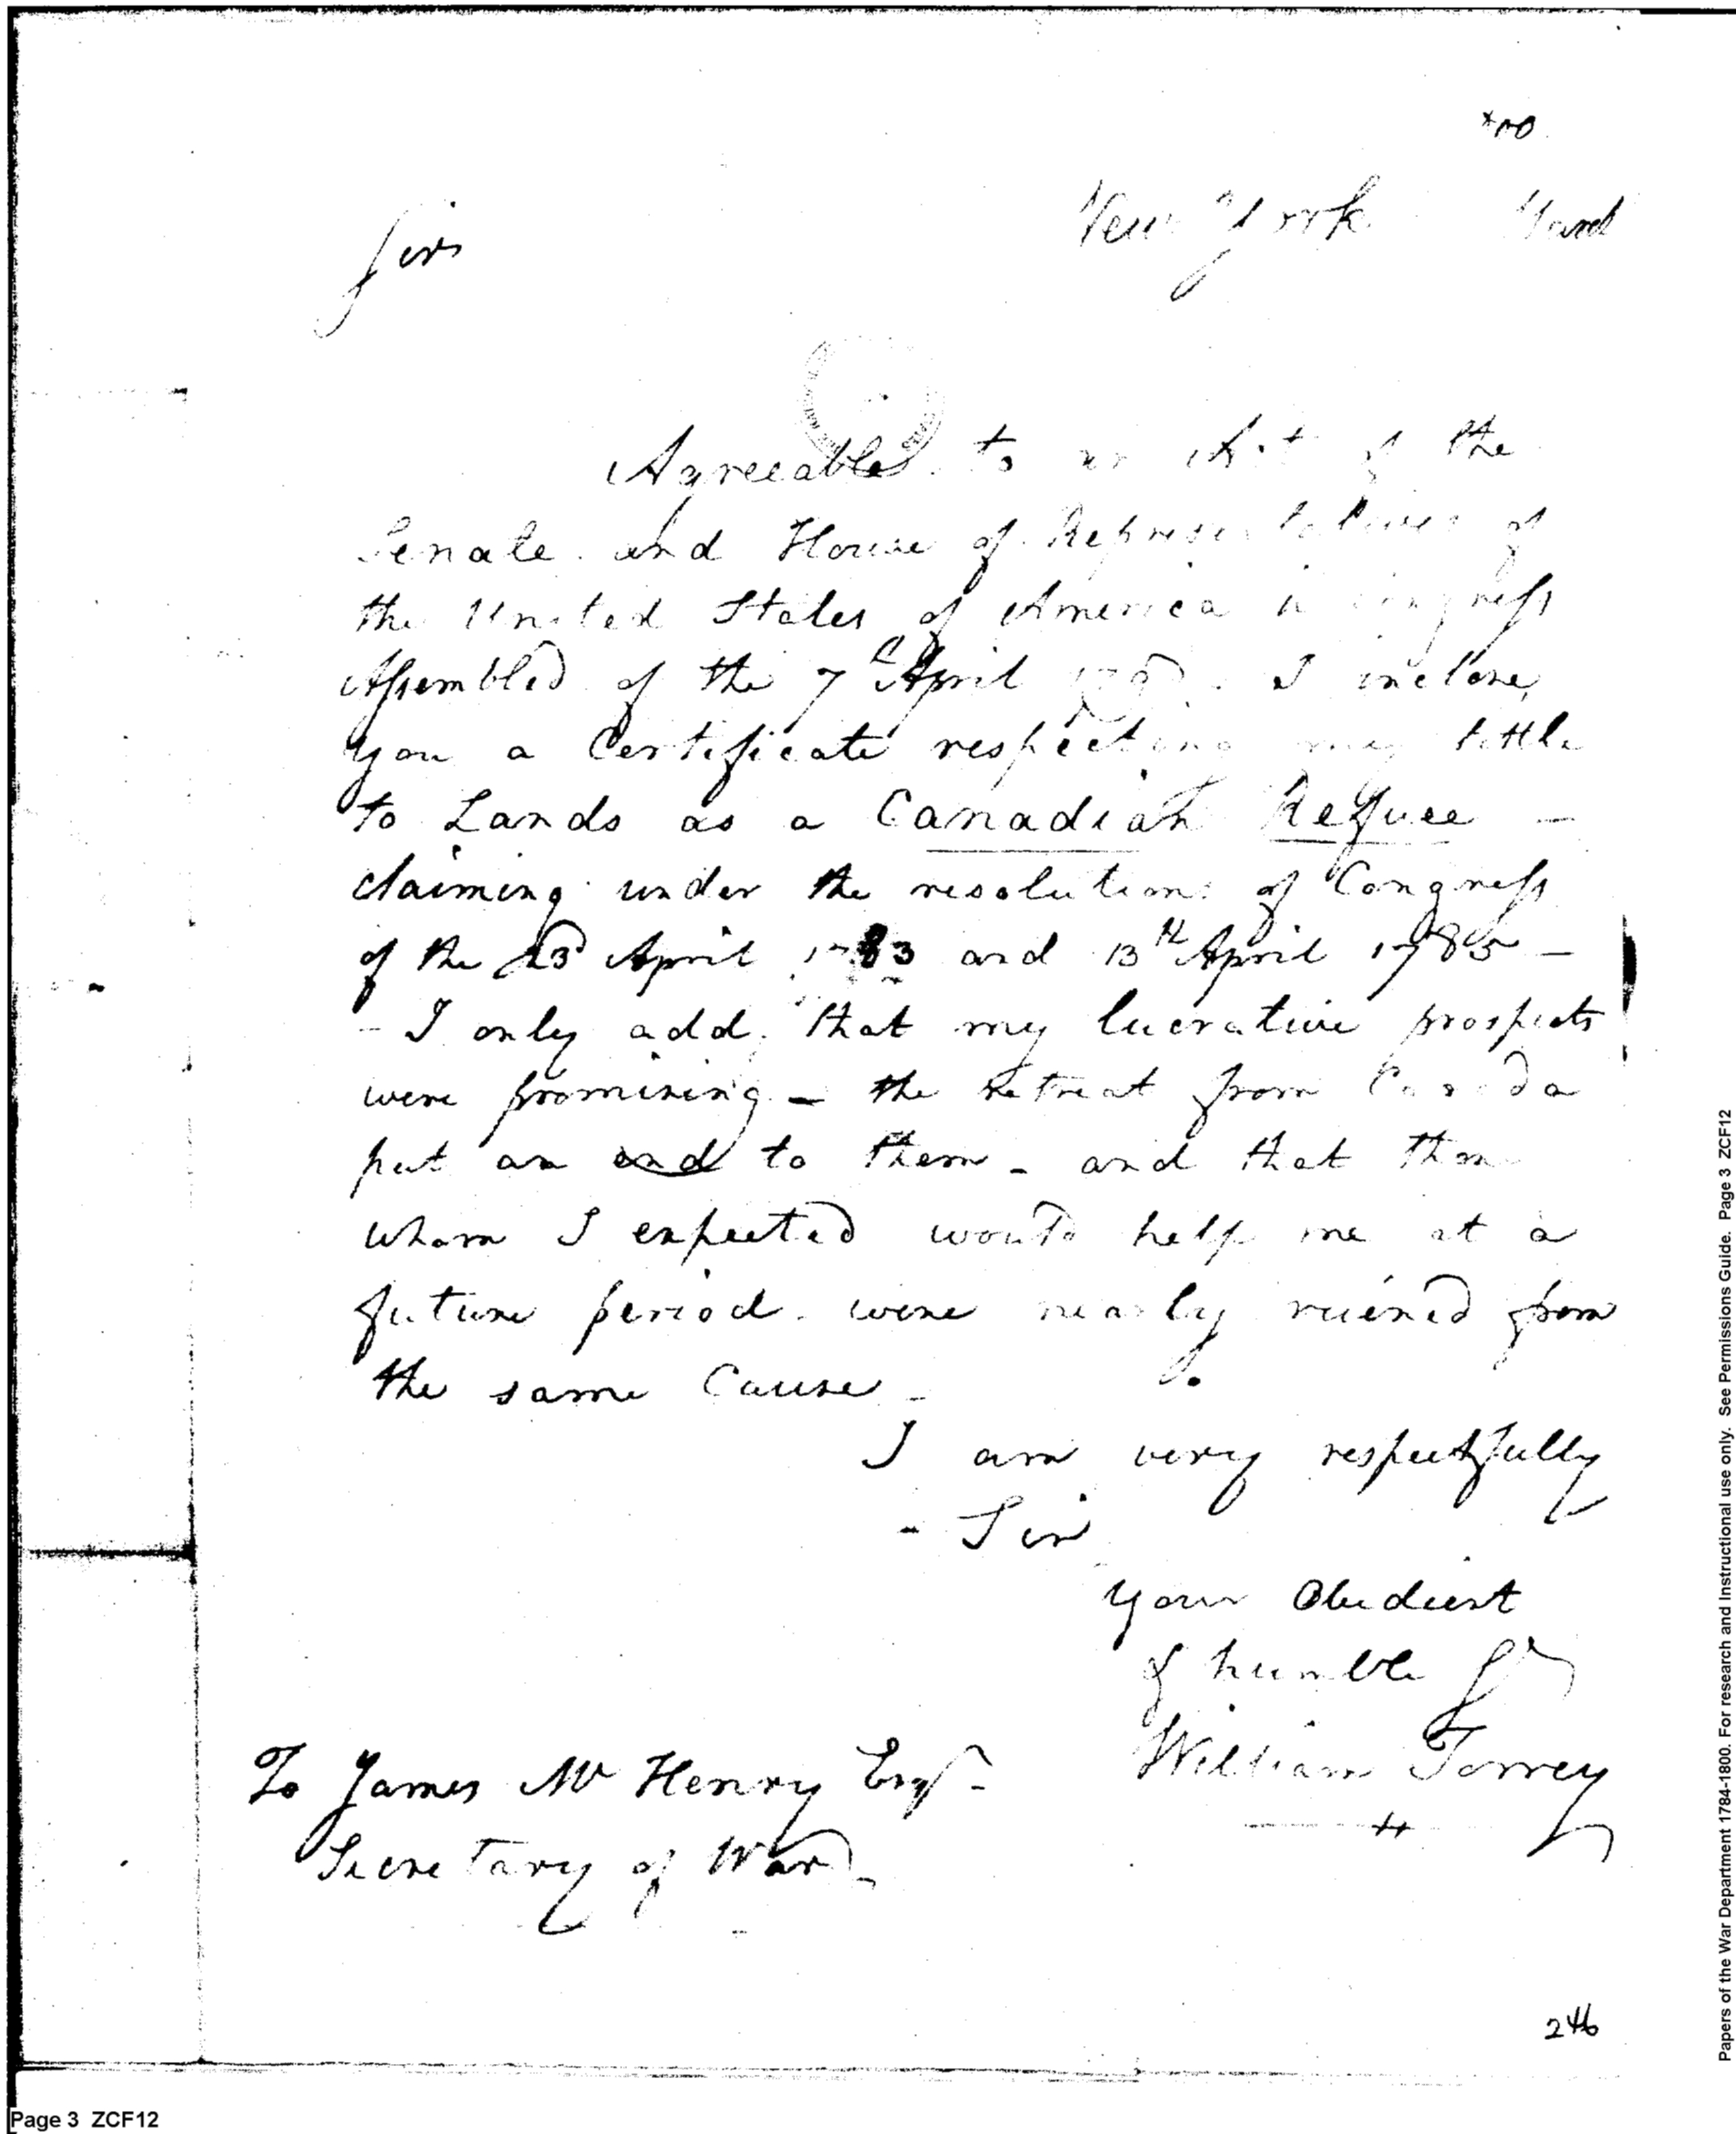 New York March
Sir
Agreeable to an Act of the
Senate and House of Representatives of
the United States of America in Congress
Assembled of the 7th April I inclose
you a Certificate respecting my tittle
to Lands as a Canadian Refuee —
claiming under the resolutions of Congress
of the 23d April 1783 and 13th April 1785 —
- I only add, that my lucrative prospects
were promising — the retreat from Canada
put an end to them - and that
whom I expected would help me at a
future period were nearly ruined from
the same Cause -
I am very respectfully
- Sir
your Obedient
& humble
William Torrey
To James Mc Henry Esqr -
Secretary of War -
246
Page 3 ZCF12
Papers of the War Department 1784-1800. For research and Instructional use only. See Permissions Guide. Page 3 ZCF12